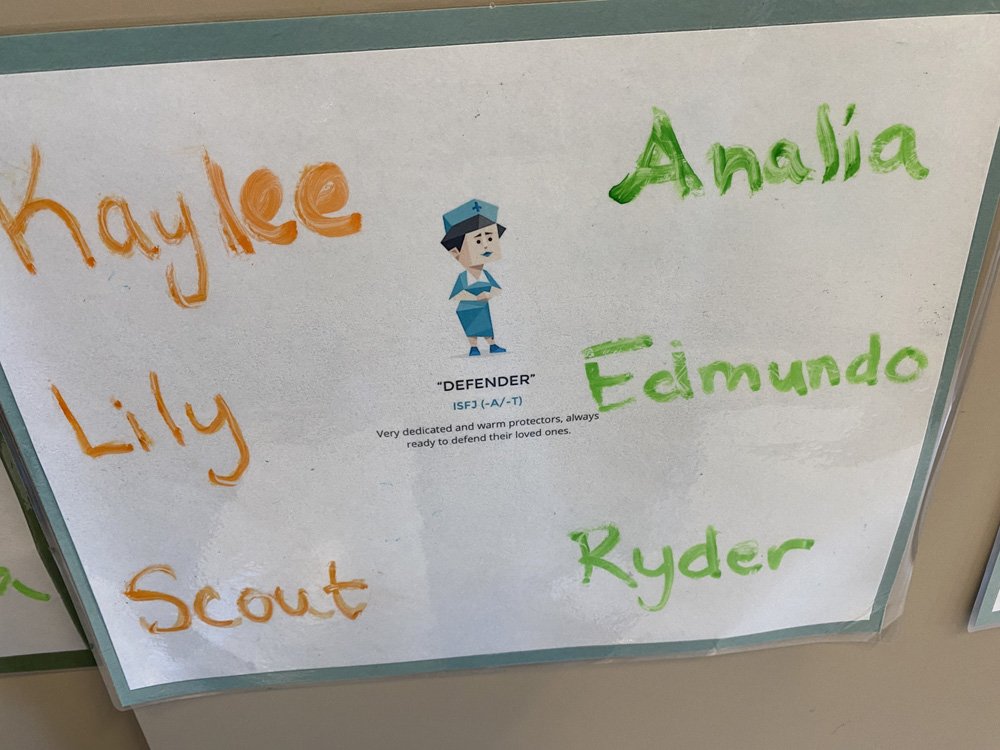 Kaylee
Lily
Scout
"DEFENDER"
ISFJ (-A/-T)
Very dedicated and warm protectors, always
ready to defend their loved ones.
Analia
Edmundo
Ryder